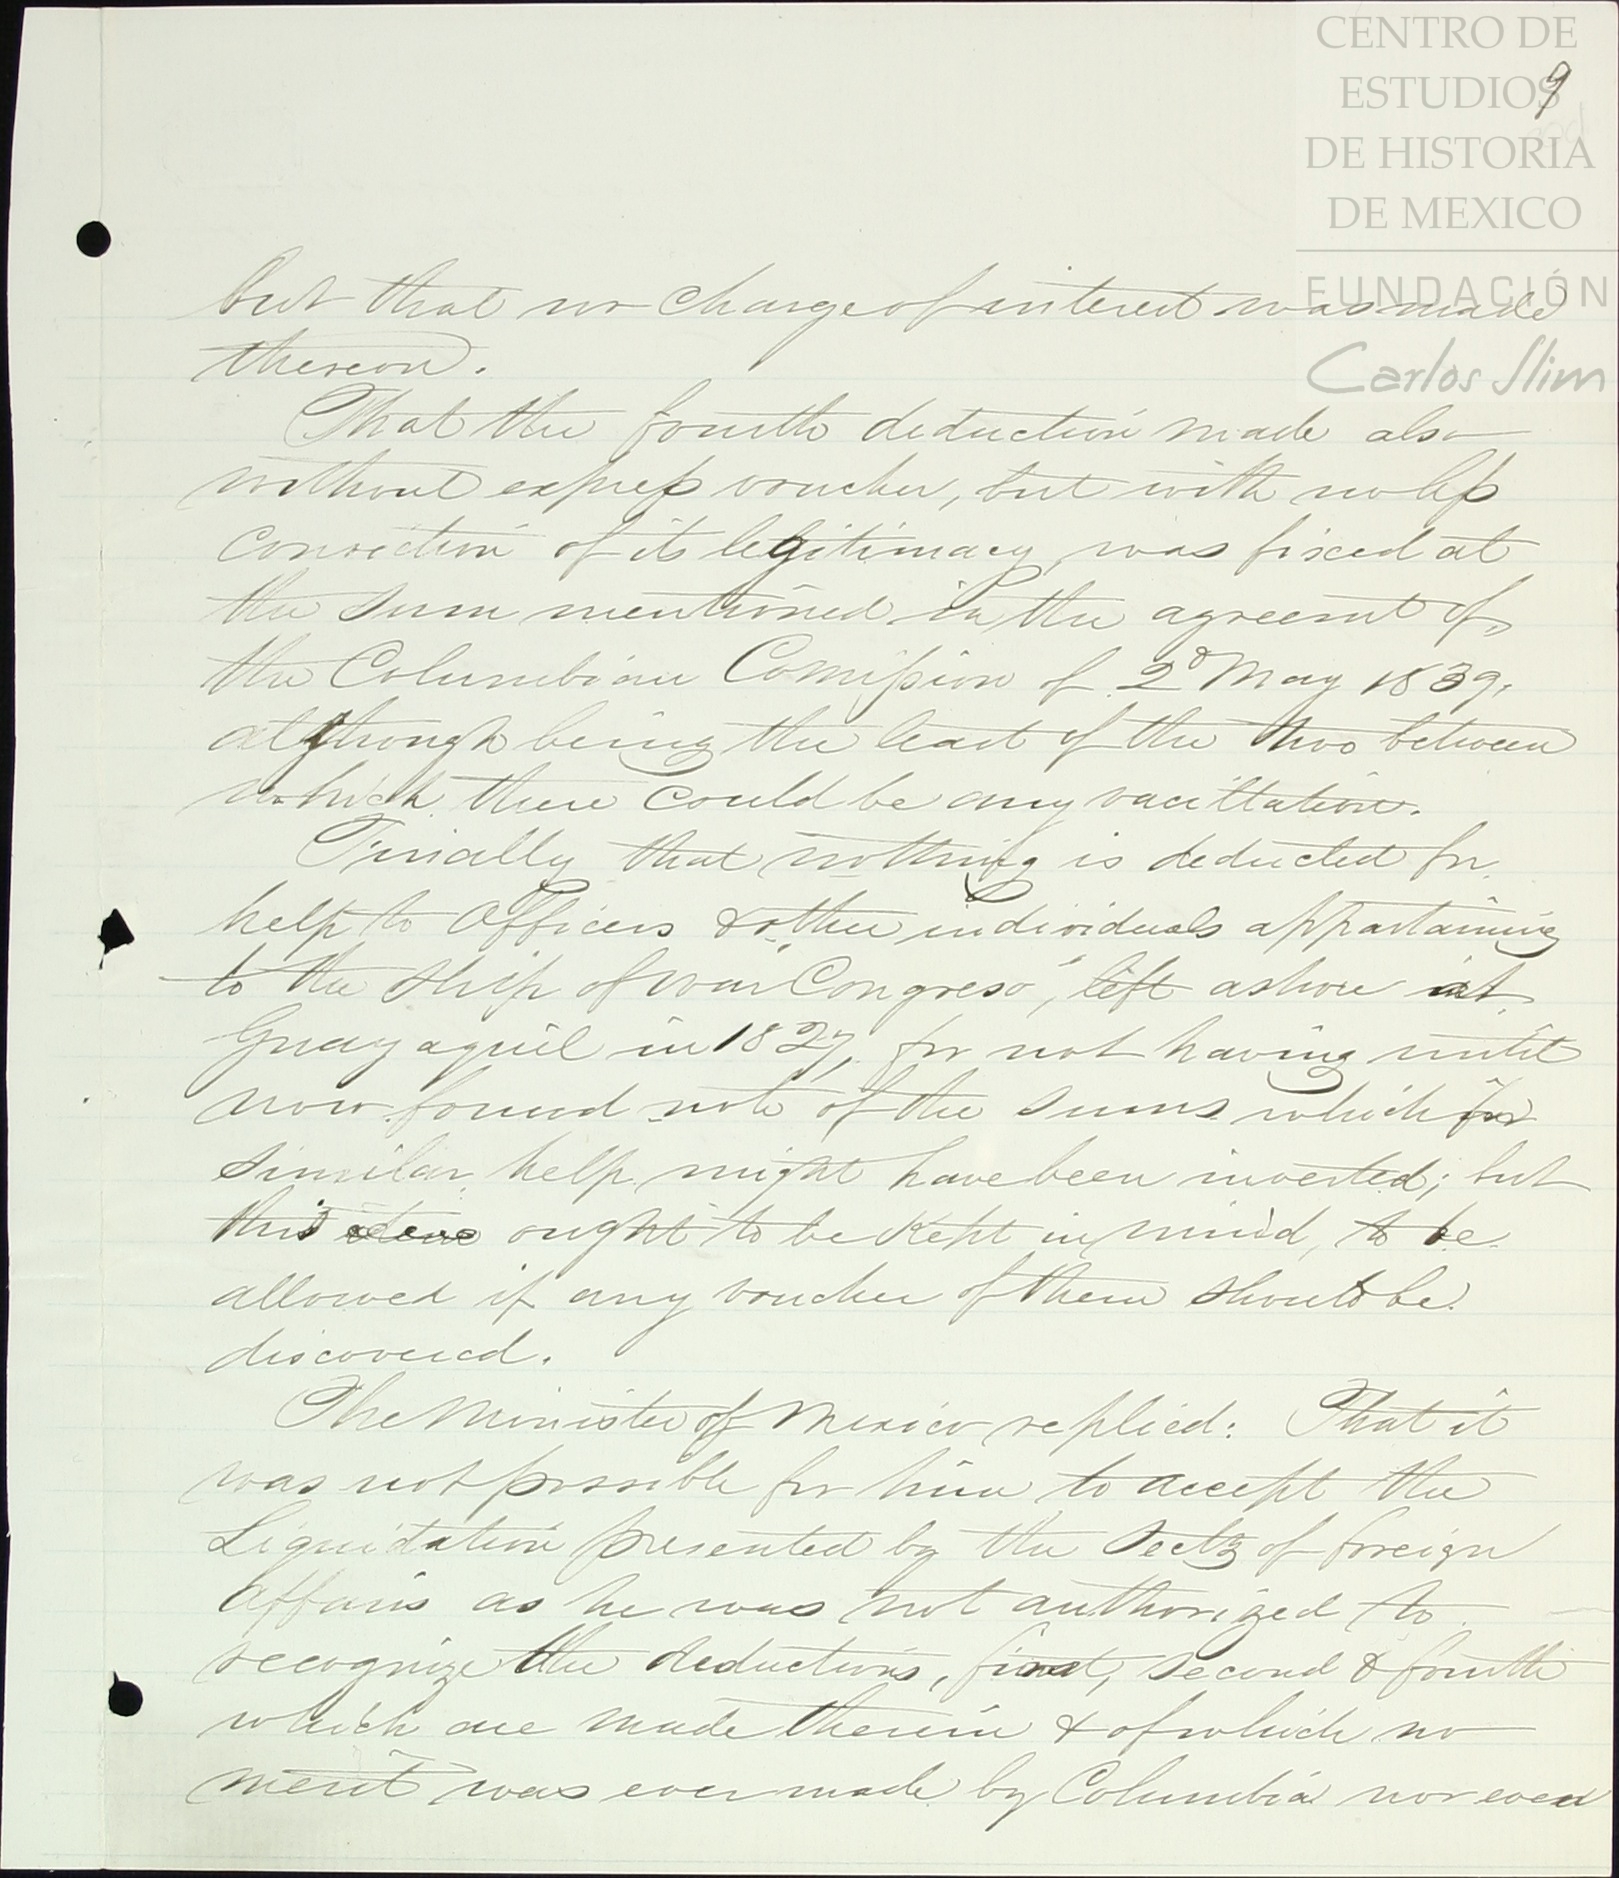 CENTRO DE
ESTUDIOS
DE HISTORIA
DE MEXICO
FUNDACIÓN
Carlos Slim
9
but that no charge of interest was made
thereon.
That the fourth deduction made also
without express voucher, but with no less
conviction of its legitimacy, was fixed at
the sum mentioned in the agreemt of
the Columbian Comission of 2d May 1839,
although being the least of the two between
which there could be any vacillation.
Finally that nothing is deducted for
help to Officers & other individuals appartaining
to the ship of war "Congreso", left ashore at
Guayaquil in 1827, for not having until
now found note of the sums which for
similar help might have been inverted; but
this ought to be kept in mind, to be
allowed if any voucher of them should be
discovered.
The Minister of Mexico replied: That it
was not possible for him to accept the
Liquidation presented by the Secty of foreign
Affairs as he was not authorized to
recognize the deductions, first, second & fourth
which are made therein & of which no
merit was ever made by Columbia nor even